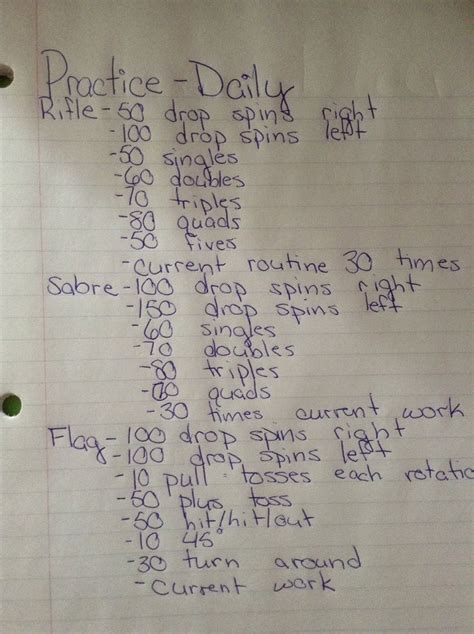 Practice - Daily
Rifle - 50 drop spins right
-100 drop spins left
-50 singles
-60 doubles
-70 triples
-80 quads
-50 fives
-current routine 30 times
Sabre - 100 drop spins right
-150 drop spins left
-60 singles
-70 doubles
-80 triples
quads
-30 times current work
Flag - 100 drop spins right
-100 drop spins left
-10 pull tosses each rotatio
-50 plus toss
-50 hit/hit/out
-10 45°
-30 turn around
-current work